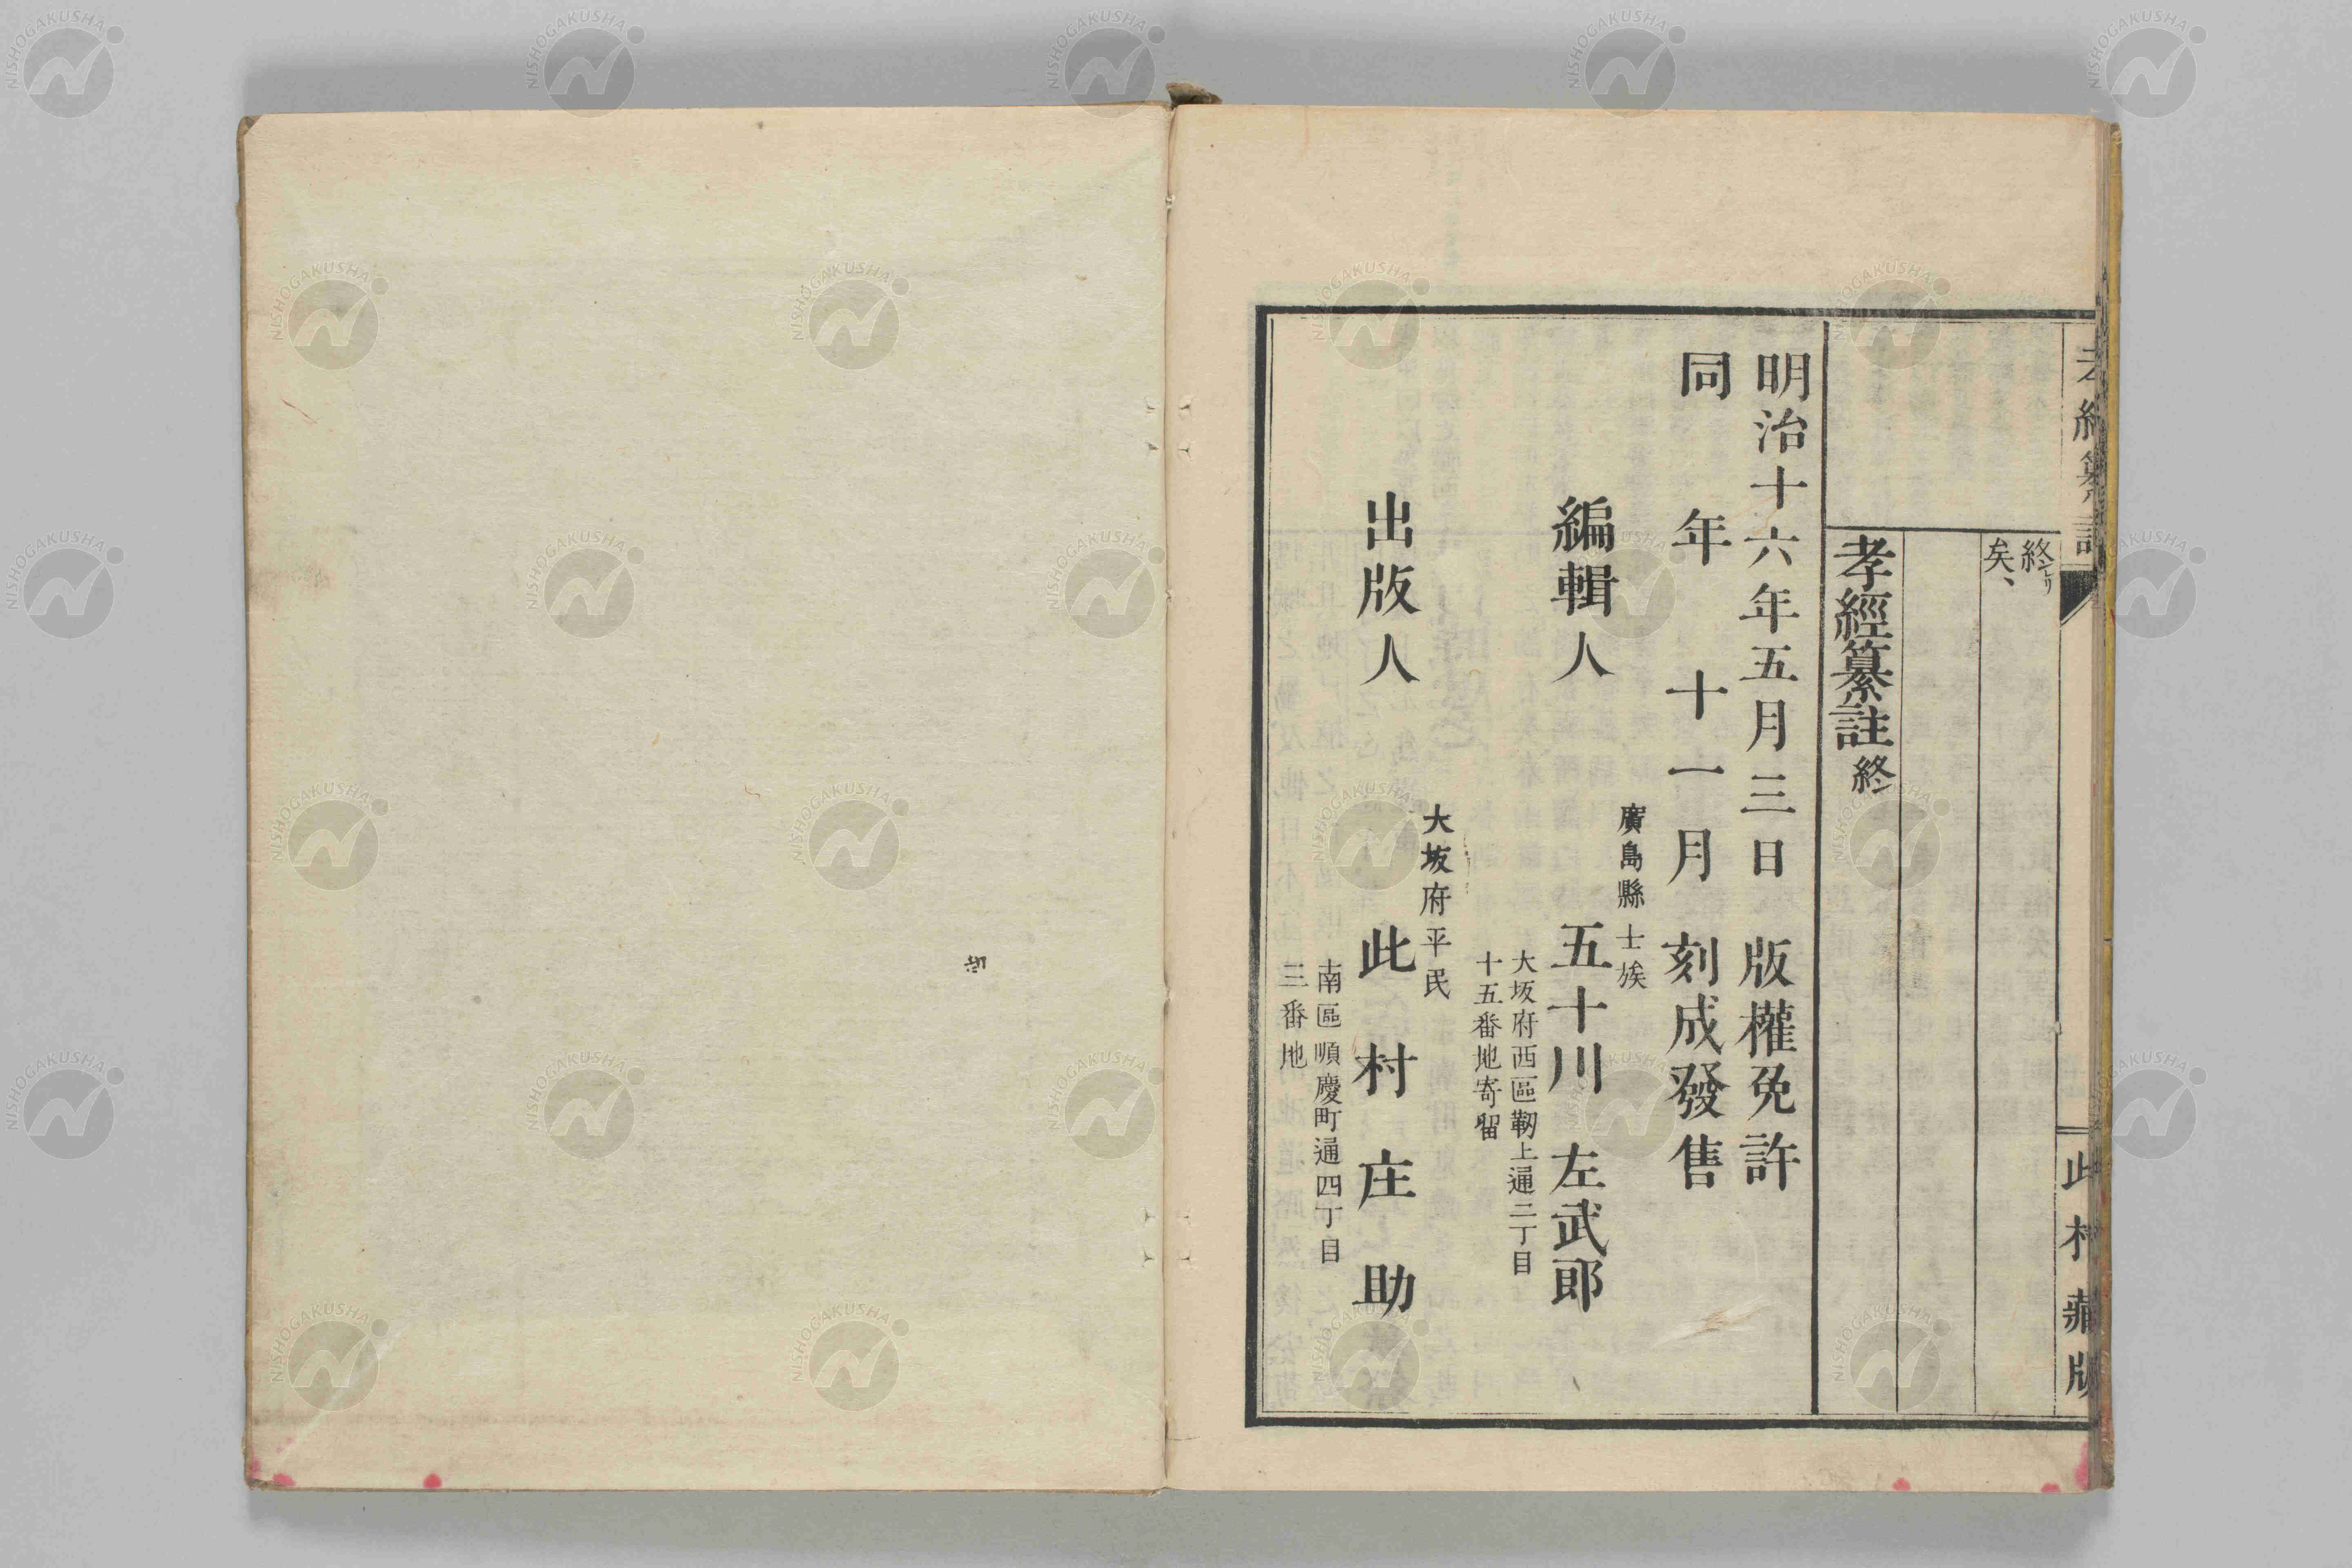 孝經纂註
此村藏版
終レリ
矣、
孝經纂註終
明治十六年五月三日版權免許
同年十一月刻成發售
廣島縣士族
編輯人五十川左武郎
大坂府西區靭上通二丁目
十五番地寄留
大坂府平民
出版人此村庄助
南區順慶町通四丁目
三番地
NISHOGAKUSHA